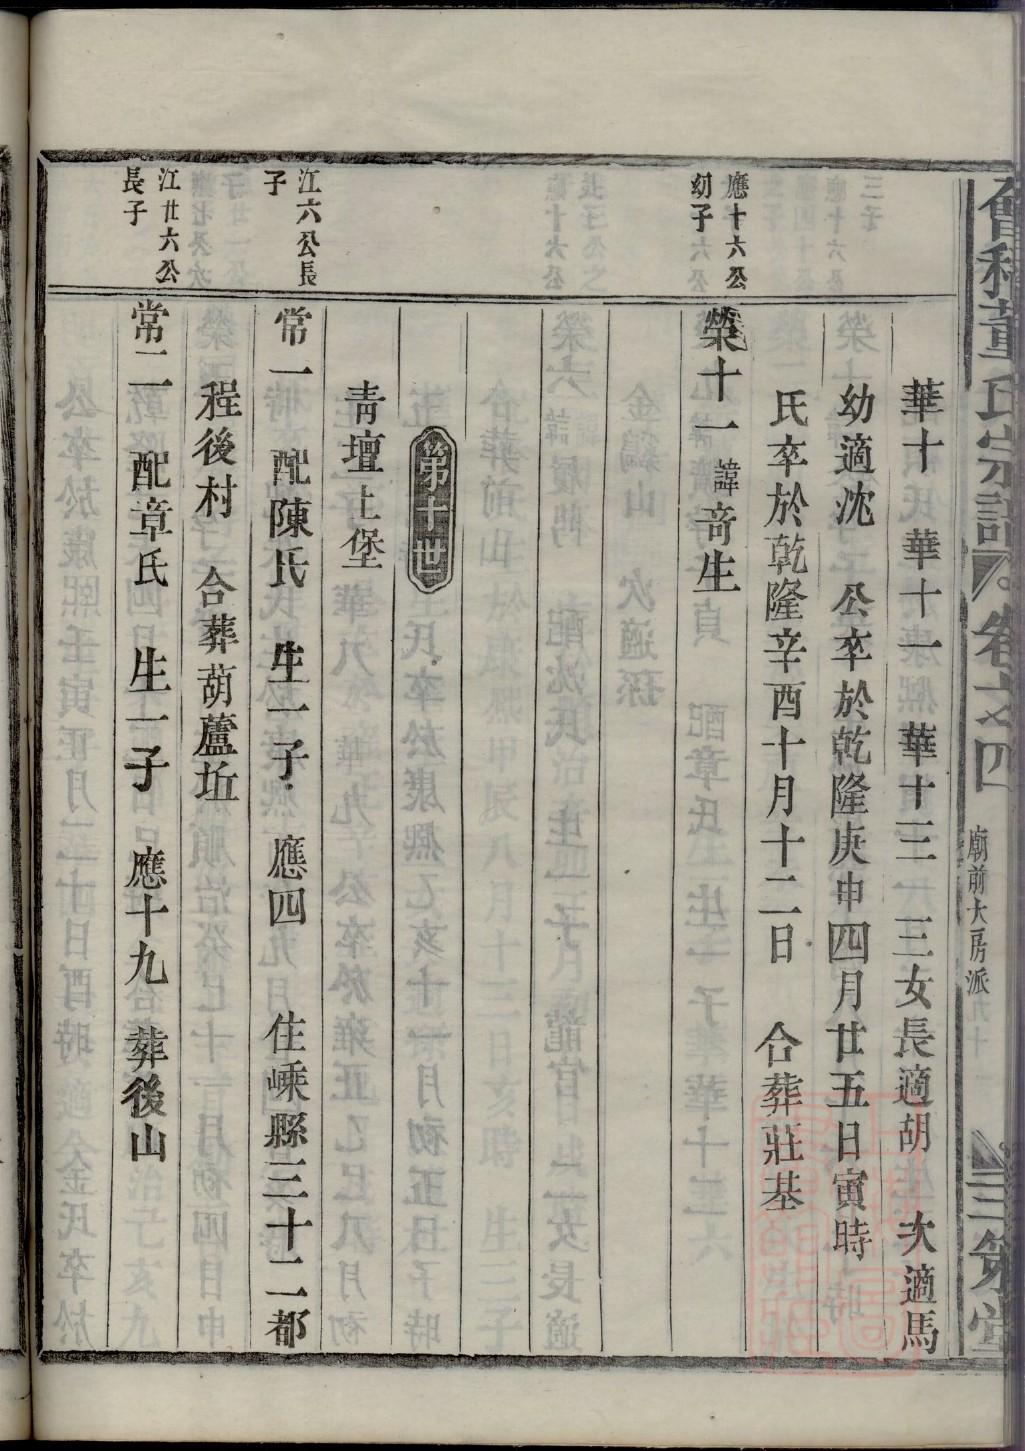 會稽董氏宗譜 卷之四 廟前大房派 三策堂
華十 華十一 華十三 三女長適胡 次適馬
幼適沈 公卒於乾隆庚申四月廿五日寅時
氏卒於乾隆辛酉十月十二日 合葬莊基
應十六公
幼子
榮十一 諱奇生
第十世
青壇上堡
江六公長
子
常一 配陳氏 生一子 應四 住嵊縣三十二都
程後村 合葬葫蘆坵
江廿六公
長子
常二 配章氏 生一子 應十九 葬後山